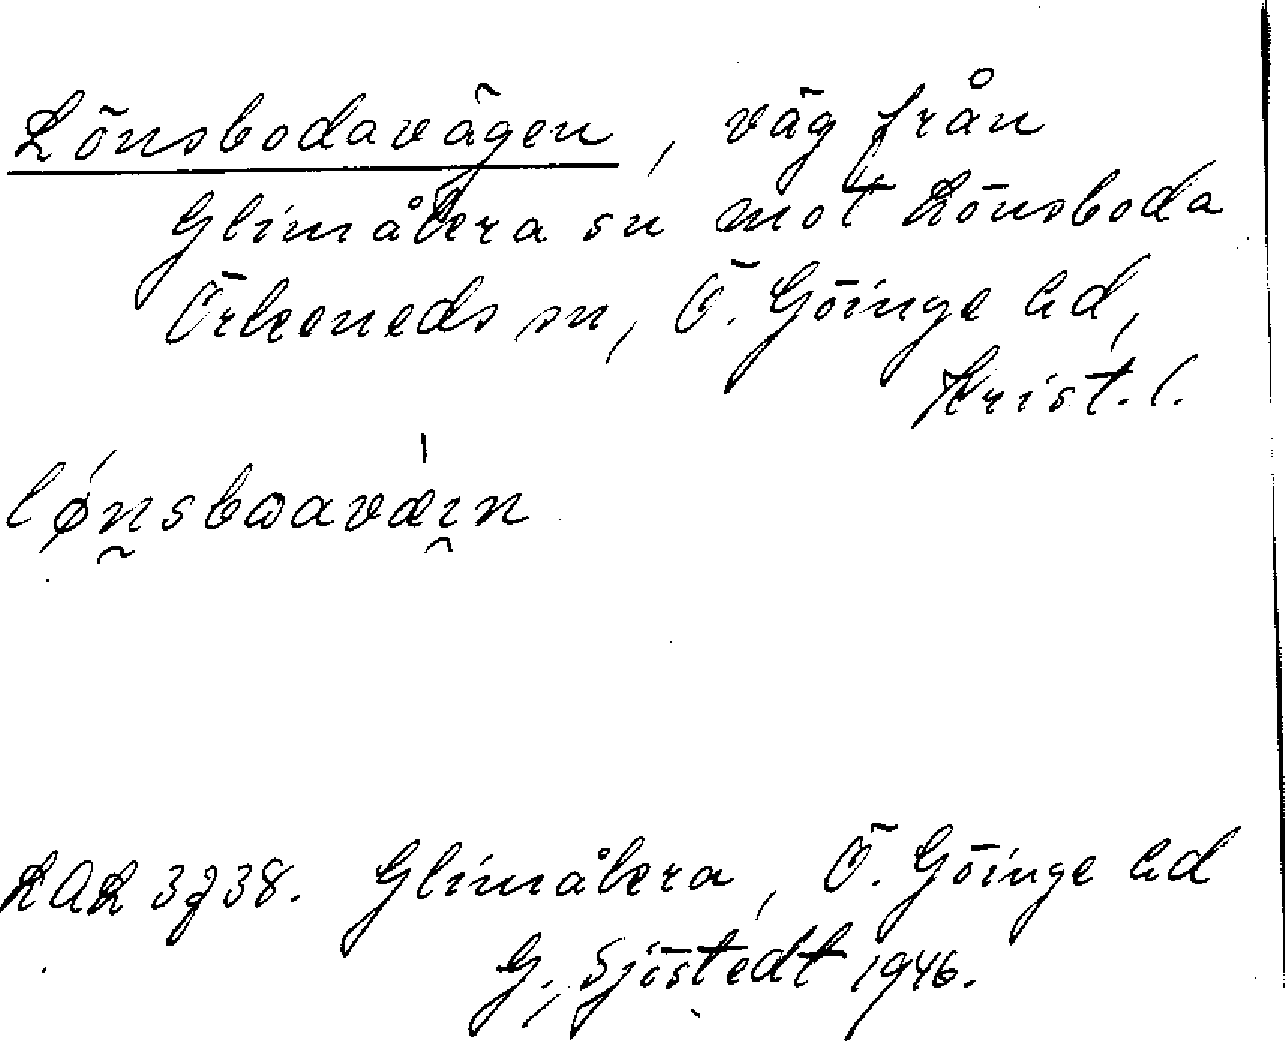 Lönsbodavägen, väg från
Glimåkra sn mot Lönsboda
Örkeneds sn, Ö. Göinge hd,
Krist. l.
LAL 3738. Glimåkra, Ö. Göinge hd
G. Sjöstedt 1946.